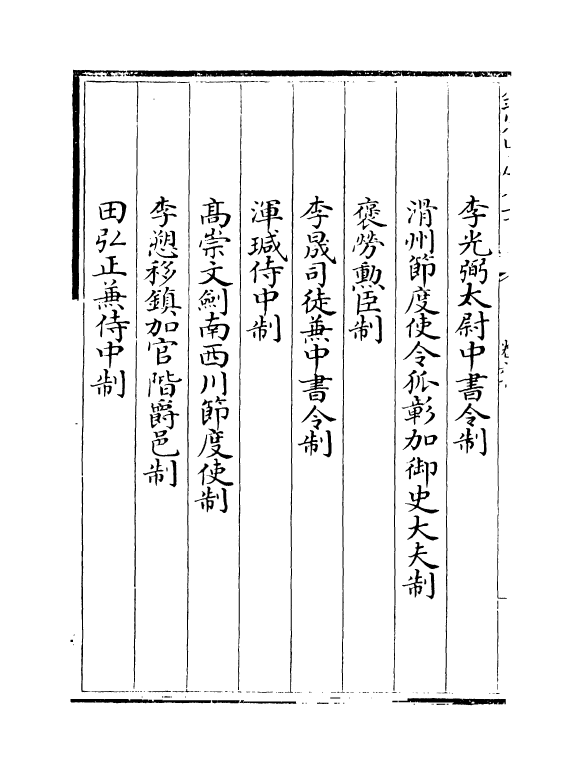 李光弼太尉中書令制
滑州節度使令狐彰加御史大夫制
褒勞勲臣制
李晟司徒兼中書令制
渾瑊侍中制
髙崇文劍南西川節度使制
李愬移鎮加官階爵邑制
田弘正兼侍中制